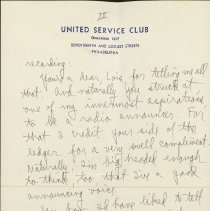 III
UNITED SERVICE CLUB
SEVENTEENTH AND LOCUST STREETS
PHILADELPHIA
recording.
You're a dear, Lois for telling me all
that. And naturally you struck at
one of my innermost aspirations
to be a radio announcer. For
that I credit your side of the
ledger for a very swell compliment.
Naturally I'm big headed enough
to think too that I'm a good
announcing voice.
I'd have liked to tell